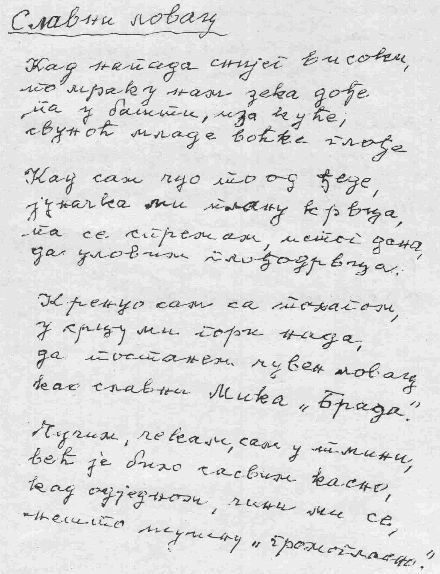 Славни ловац
Кад нападa снијег високи,
по мраку нам зека дође
па у башти, иза куће,
свуноћ младе воћке глође
Кад сам чуо то од ђеде,
јуначка ми плану крвца,
па се спремам, истог дана,
да уловим глођодрвца.
Кренуо сам са топапом,
у срцу ми гори нада,
да постанем чувен ловац
као славни Мика „Брада".
Чучим, чекам, сам у тмини,
већ је било сасвим касно,
кад одједном, чини ми се,
нешто муцну „громогласно."